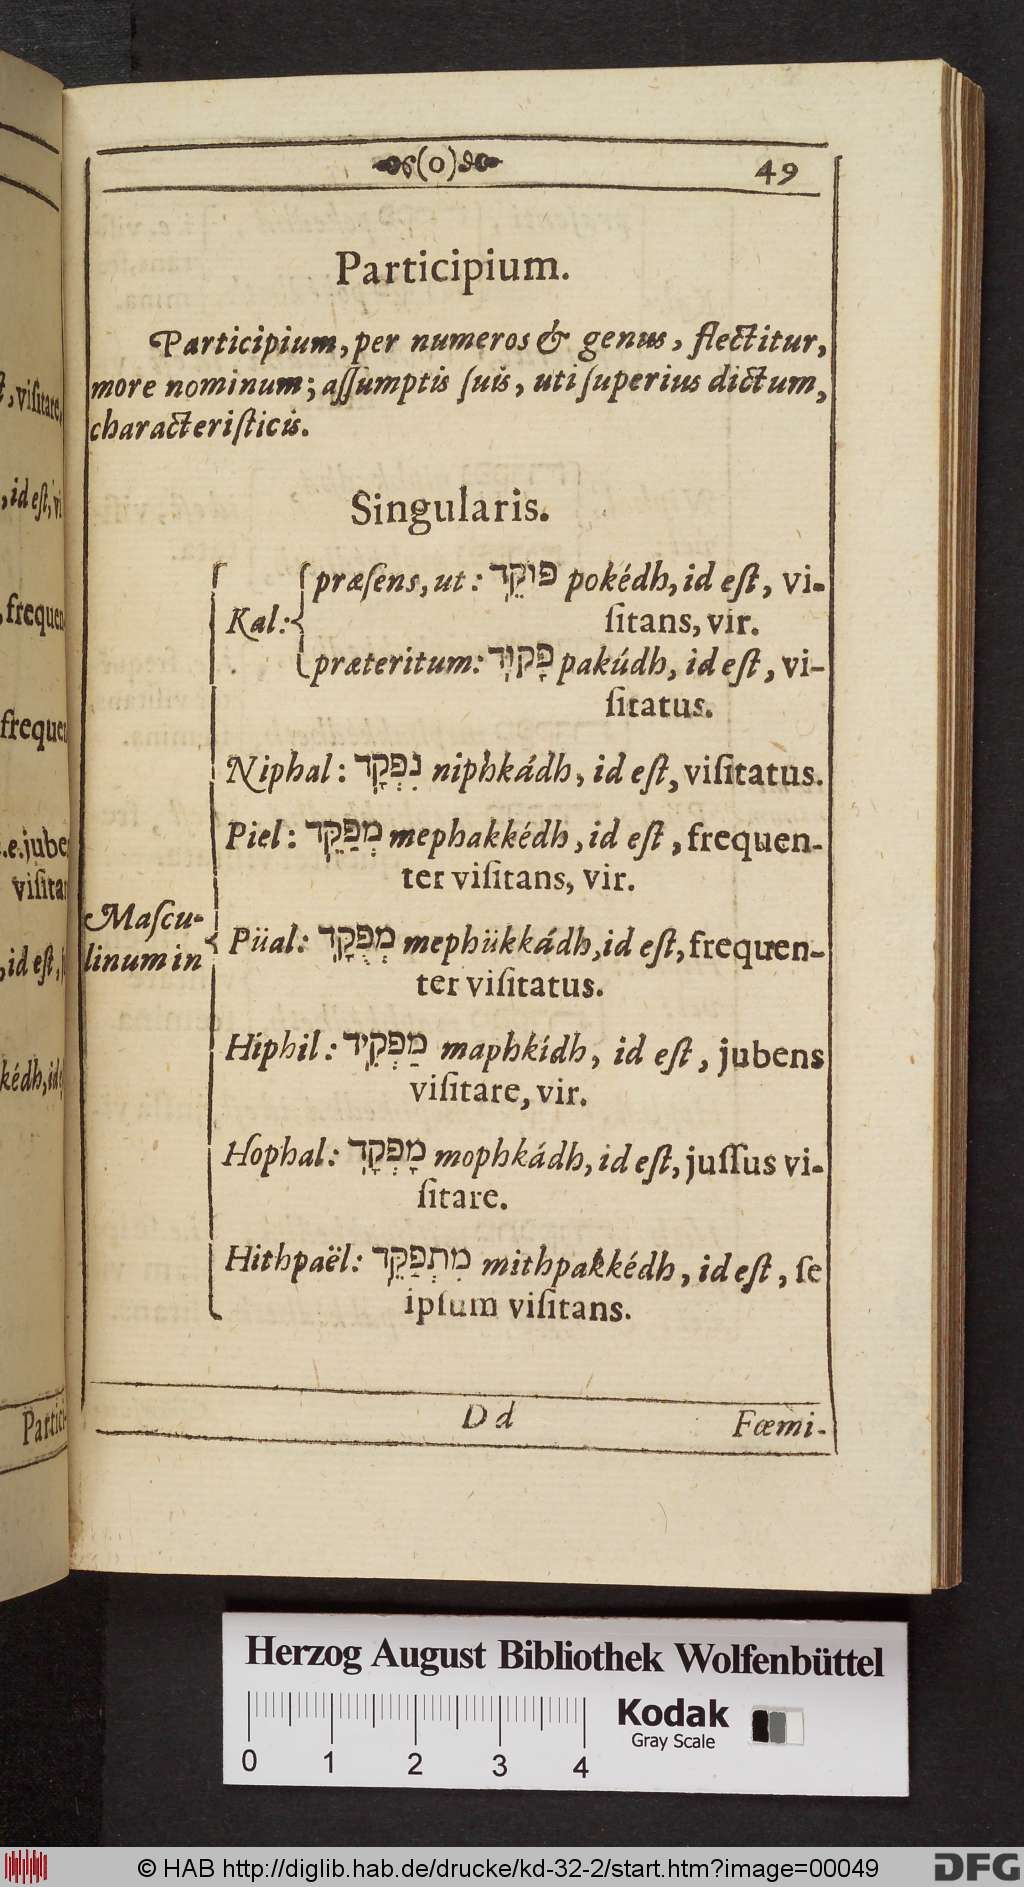 (o) 49
Participium.
Participium, per numeros & genus, flectitur,
more nominum; aſſumptis ſuis, uti ſuperius dictum,
characteriſticis.
Singularis.
Maſcu-
linum in
Kal:
præſens, ut: פּוֹקֵד pokédh, id eſt, vi-
ſitans, vir.
præteritum: פָּקוּד pakúdh, id eſt, vi-
ſitatus.
Niphal: נִפְקָד niphkádh, id eſt, viſitatus.
Piel: מְפַקֵּד mephakkédh, id eſt, frequen-
ter viſitans, vir.
Püal: מְפֻקָּד mephükkádh, id eſt, frequen-
ter viſitatus.
Hiphil: מַפְקִיד maphkídh, id eſt, jubens
viſitare, vir.
Hophal: מָפְקָד mophkádh, id eſt, juſſus vi-
ſitare.
Hithpaël: מִתְפַּקֵּד mithpakkédh, id eſt, ſe
ipſum viſitans.
D d Fœmi-
viſitare,
id eſt, vi
frequen
frequen
.e. jube
viſita
id eſt,
kédh, id
Partici-
Herzog August Bibliothek Wolfenbüttel
0 1 2 3 4
Kodak
Gray Scale
© HAB http://diglib.hab.de/drucke/kd-32-2/start.htm?image=00049
DFG